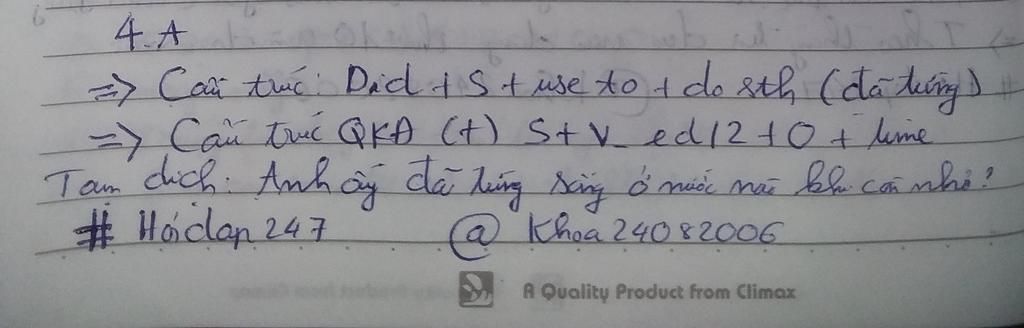 4. A
=> Cấu trúc: Did + S + use to + do sth (đã từng)
=> Cấu trúc QKĐ (+) S + V_ed/2 + O + time
Tạm dịch: Anh ấy đã từng sống ở nước nào khi còn nhỏ?
# Hoidap 247 @ Khoa24082006
A Quality Product from Climax